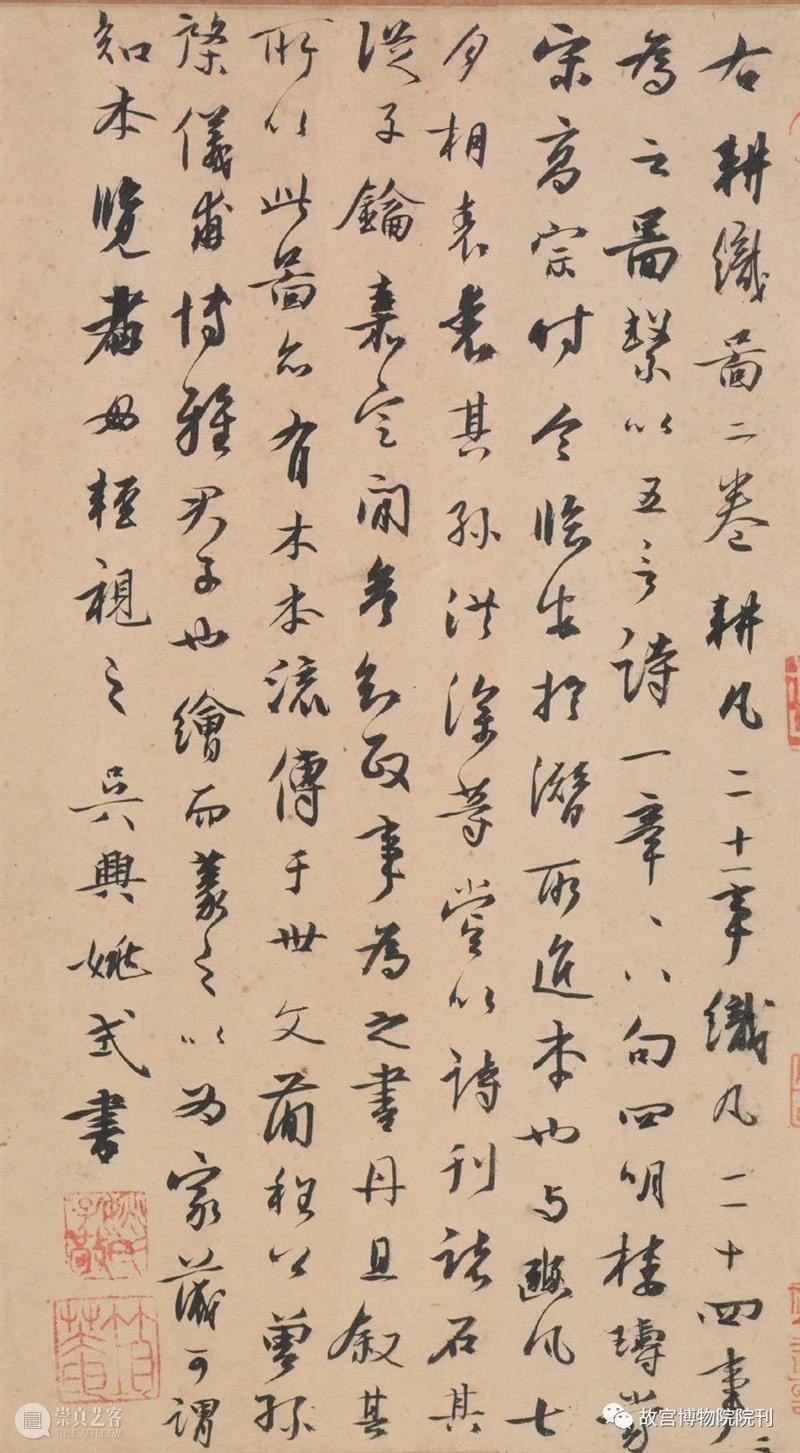 右耕織圖二卷耕凡二十一事織凡二十四事〻
為之圖繫以五言詩一章〻八句四明樓璹當
宋高宗時令臨安於潛所進本也与豳風七
月相表裏其孫洪深等嘗以詩刊諸石其
從子鑰嘉定間參知政事為之書丹且叙其
所以此圖亦有木本流傳于世文簡程公曾孫
棨儀甫博雅君子也繪而篆之以為家藏可謂
知本覽者毋輕視之吳興姚式書
姚氏子敬
崇真艺客
故宫博物院院刊